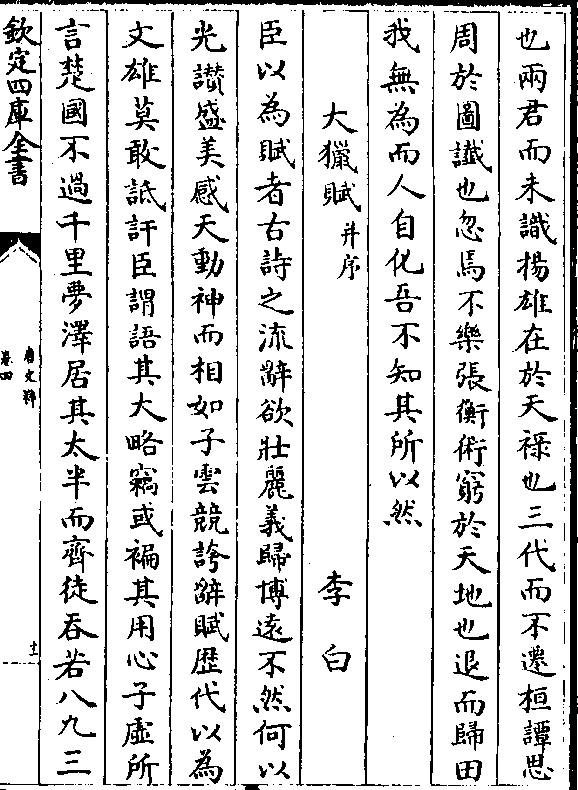 也兩君而未識揚雄在於天祿也三代而不遷桓譚思
周於圖讖也忽焉不樂張衡術窮於天地也退而歸田
我無為而人自化吾不知其所以然
大獵賦并序 李白
臣以為賦者古詩之流辭欲壯麗義歸博遠不然何以
光讃盛美感天動神而相如子雲競誇辭賦歴代以為
文雄莫敢詆訐臣謂語其大略竊或褊其用心子虛所
言楚國不過千里夢澤居其太半而齊徒吞若八九三
欽定四庫全書
唐文粹
卷四
十二